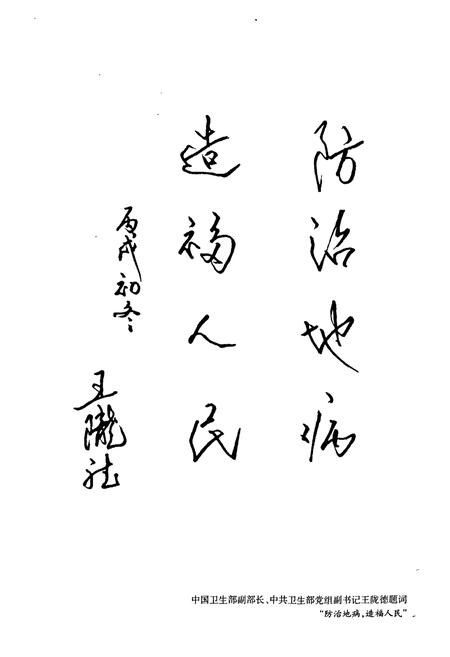 防治地病
造福人民
丙戌初冬
王陇德
中国卫生部副部长、中共卫生部党组副书记王陇德题词
“防治地病,造福人民”